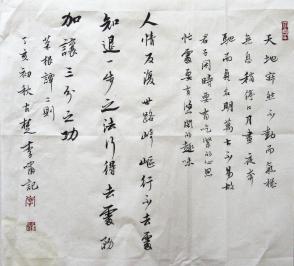 天地寂然不動而氣機
無息稍停日月晝夜奔
馳而貞明萬古不易故
君子閒時要有吃緊的心思
忙處要有悠閒的趣味
人情反復世路崎嶇行不去處
知退一步之法行得去處務
加讓三分之功
菜根譚二則
丁亥初秋古楚李記